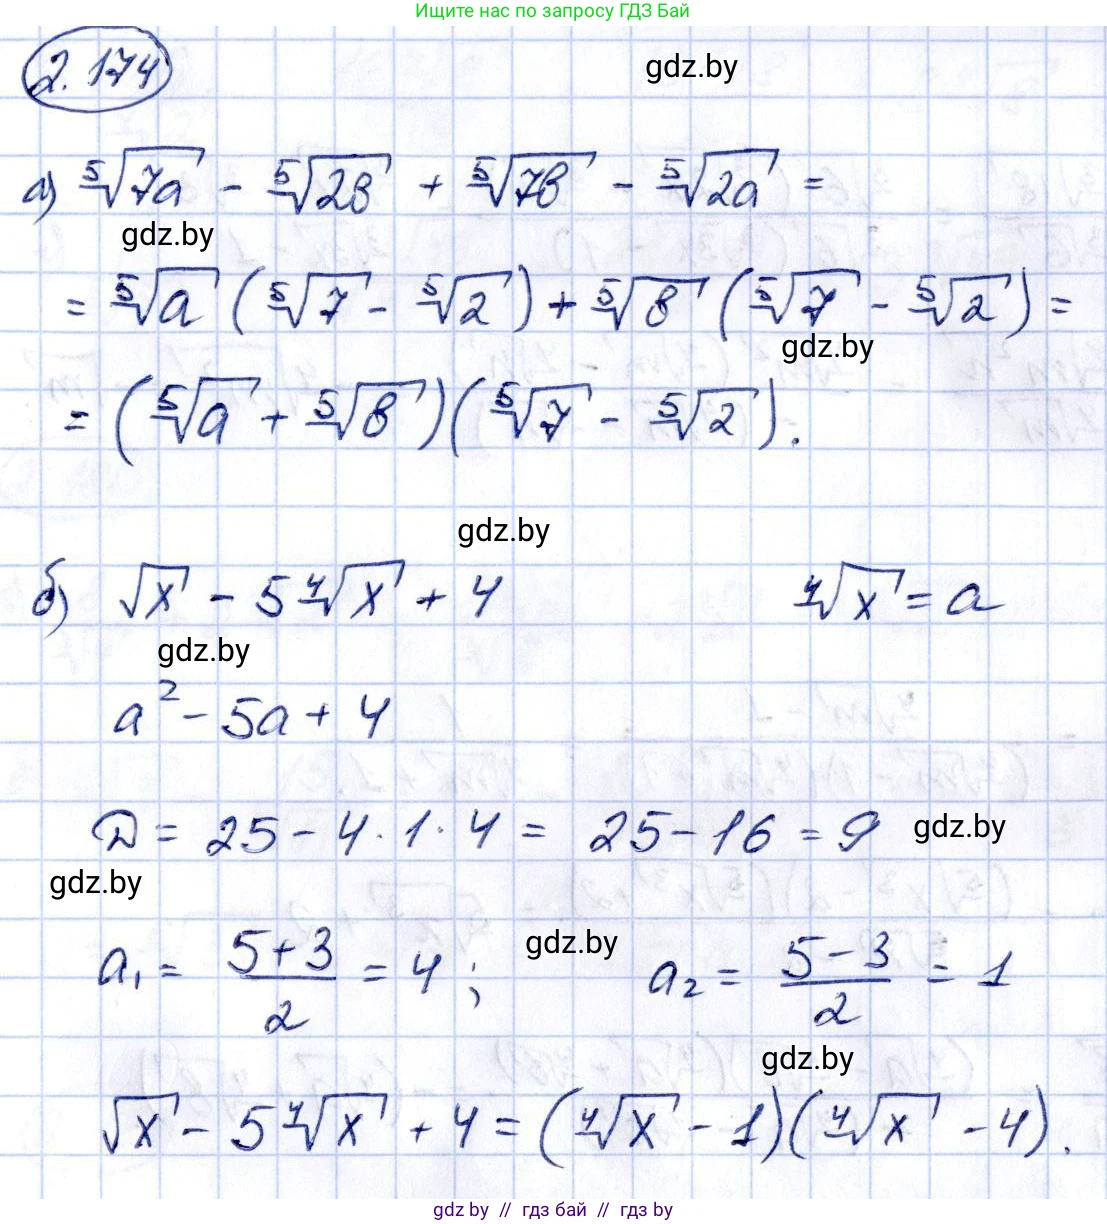 Ищите нас по запросу ГДЗ Бай
2.174
gdz.by
а) ⁵√7a - ⁵√2в + ⁵√7в - ⁵√2a =
gdz.by
= ⁵√a (⁵√7 - ⁵√2) + ⁵√в (⁵√7 - ⁵√2) =
gdz.by
= (⁵√a + ⁵√в)(⁵√7 - ⁵√2).
gdz.by
б) √x - 5⁴√x + 4 ⁴√x = a
gdz.by
a² - 5a + 4
D = 25 - 4 · 1 · 4 = 25 - 16 = 9 gdz.by
gdz.by
a₁ = (5+3)/2 = 4 ; gdz.by a₂ = (5-3)/2 = 1
gdz.by
√x - 5⁴√x + 4 = (⁴√x - 1)(⁴√x - 4).
gdz.by // гдз бай // гдз by